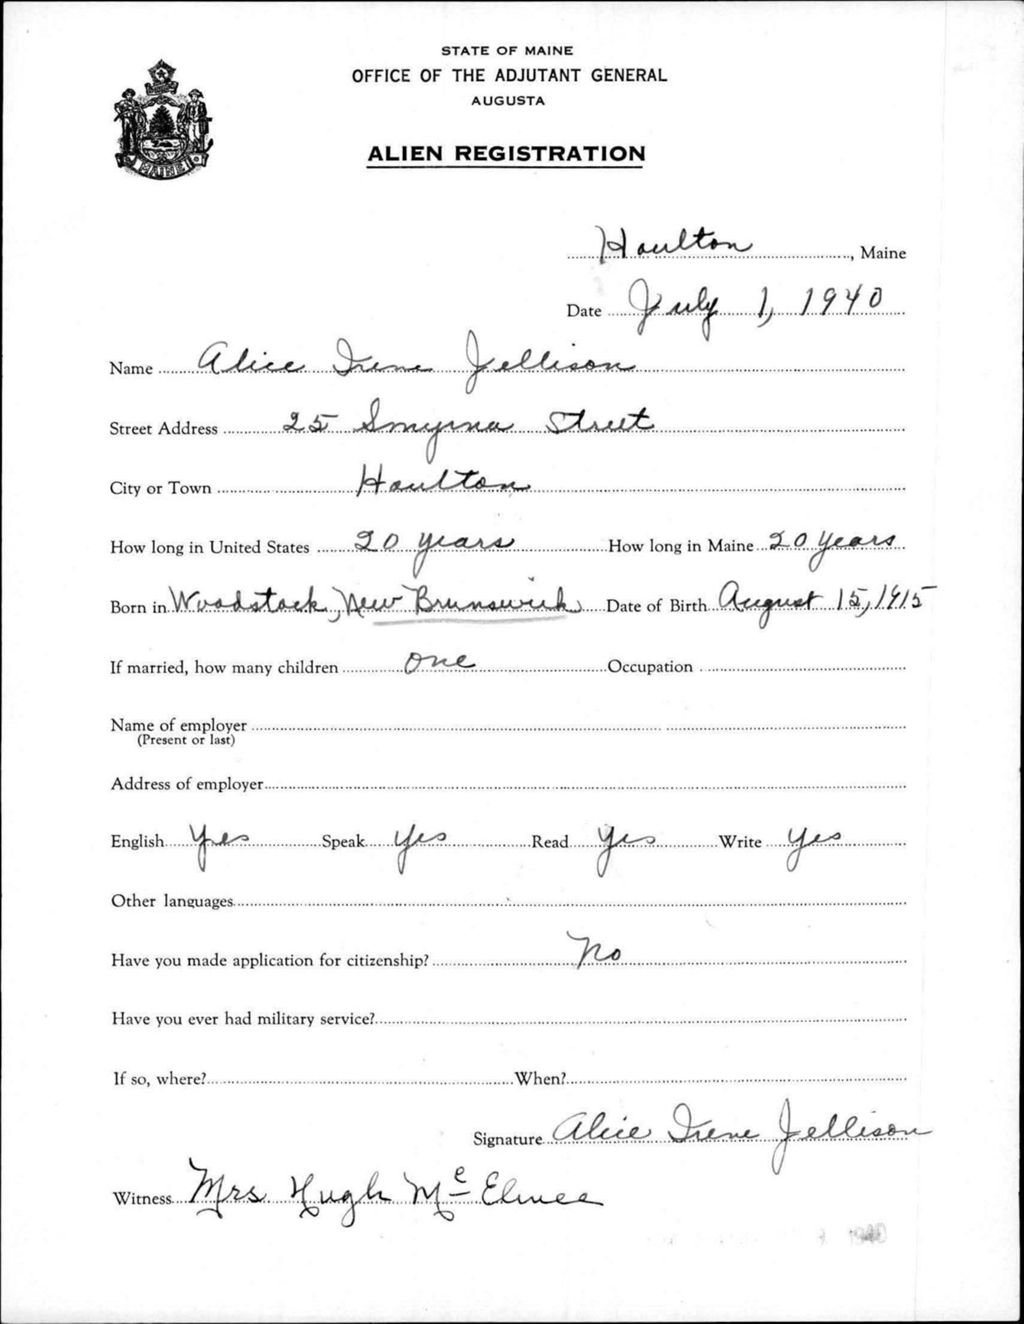 STATE OF MAINE
OFFICE OF THE ADJUTANT GENERAL
AUGUSTA
ALIEN REGISTRATION
MAINE
Houlton, Maine
Date July 1, 1940
Name Alice Irene Jellison
Street Address 25 Smyrna Street
City or Town Houlton
How long in United States 20 years How long in Maine 20 years
Born in Woodstock, New Brunswick Date of Birth August 15, 1915
If married, how many children one Occupation
Name of employer
(Present or last)
Address of employer
English Yes Speak Yes Read Yes Write Yes
Other languages
Have you made application for citizenship? No
Have you ever had military service?
If so, where? When?
Signature Alice Irene Jellison
Witness Mrs Hugh Mc Elwee
1940